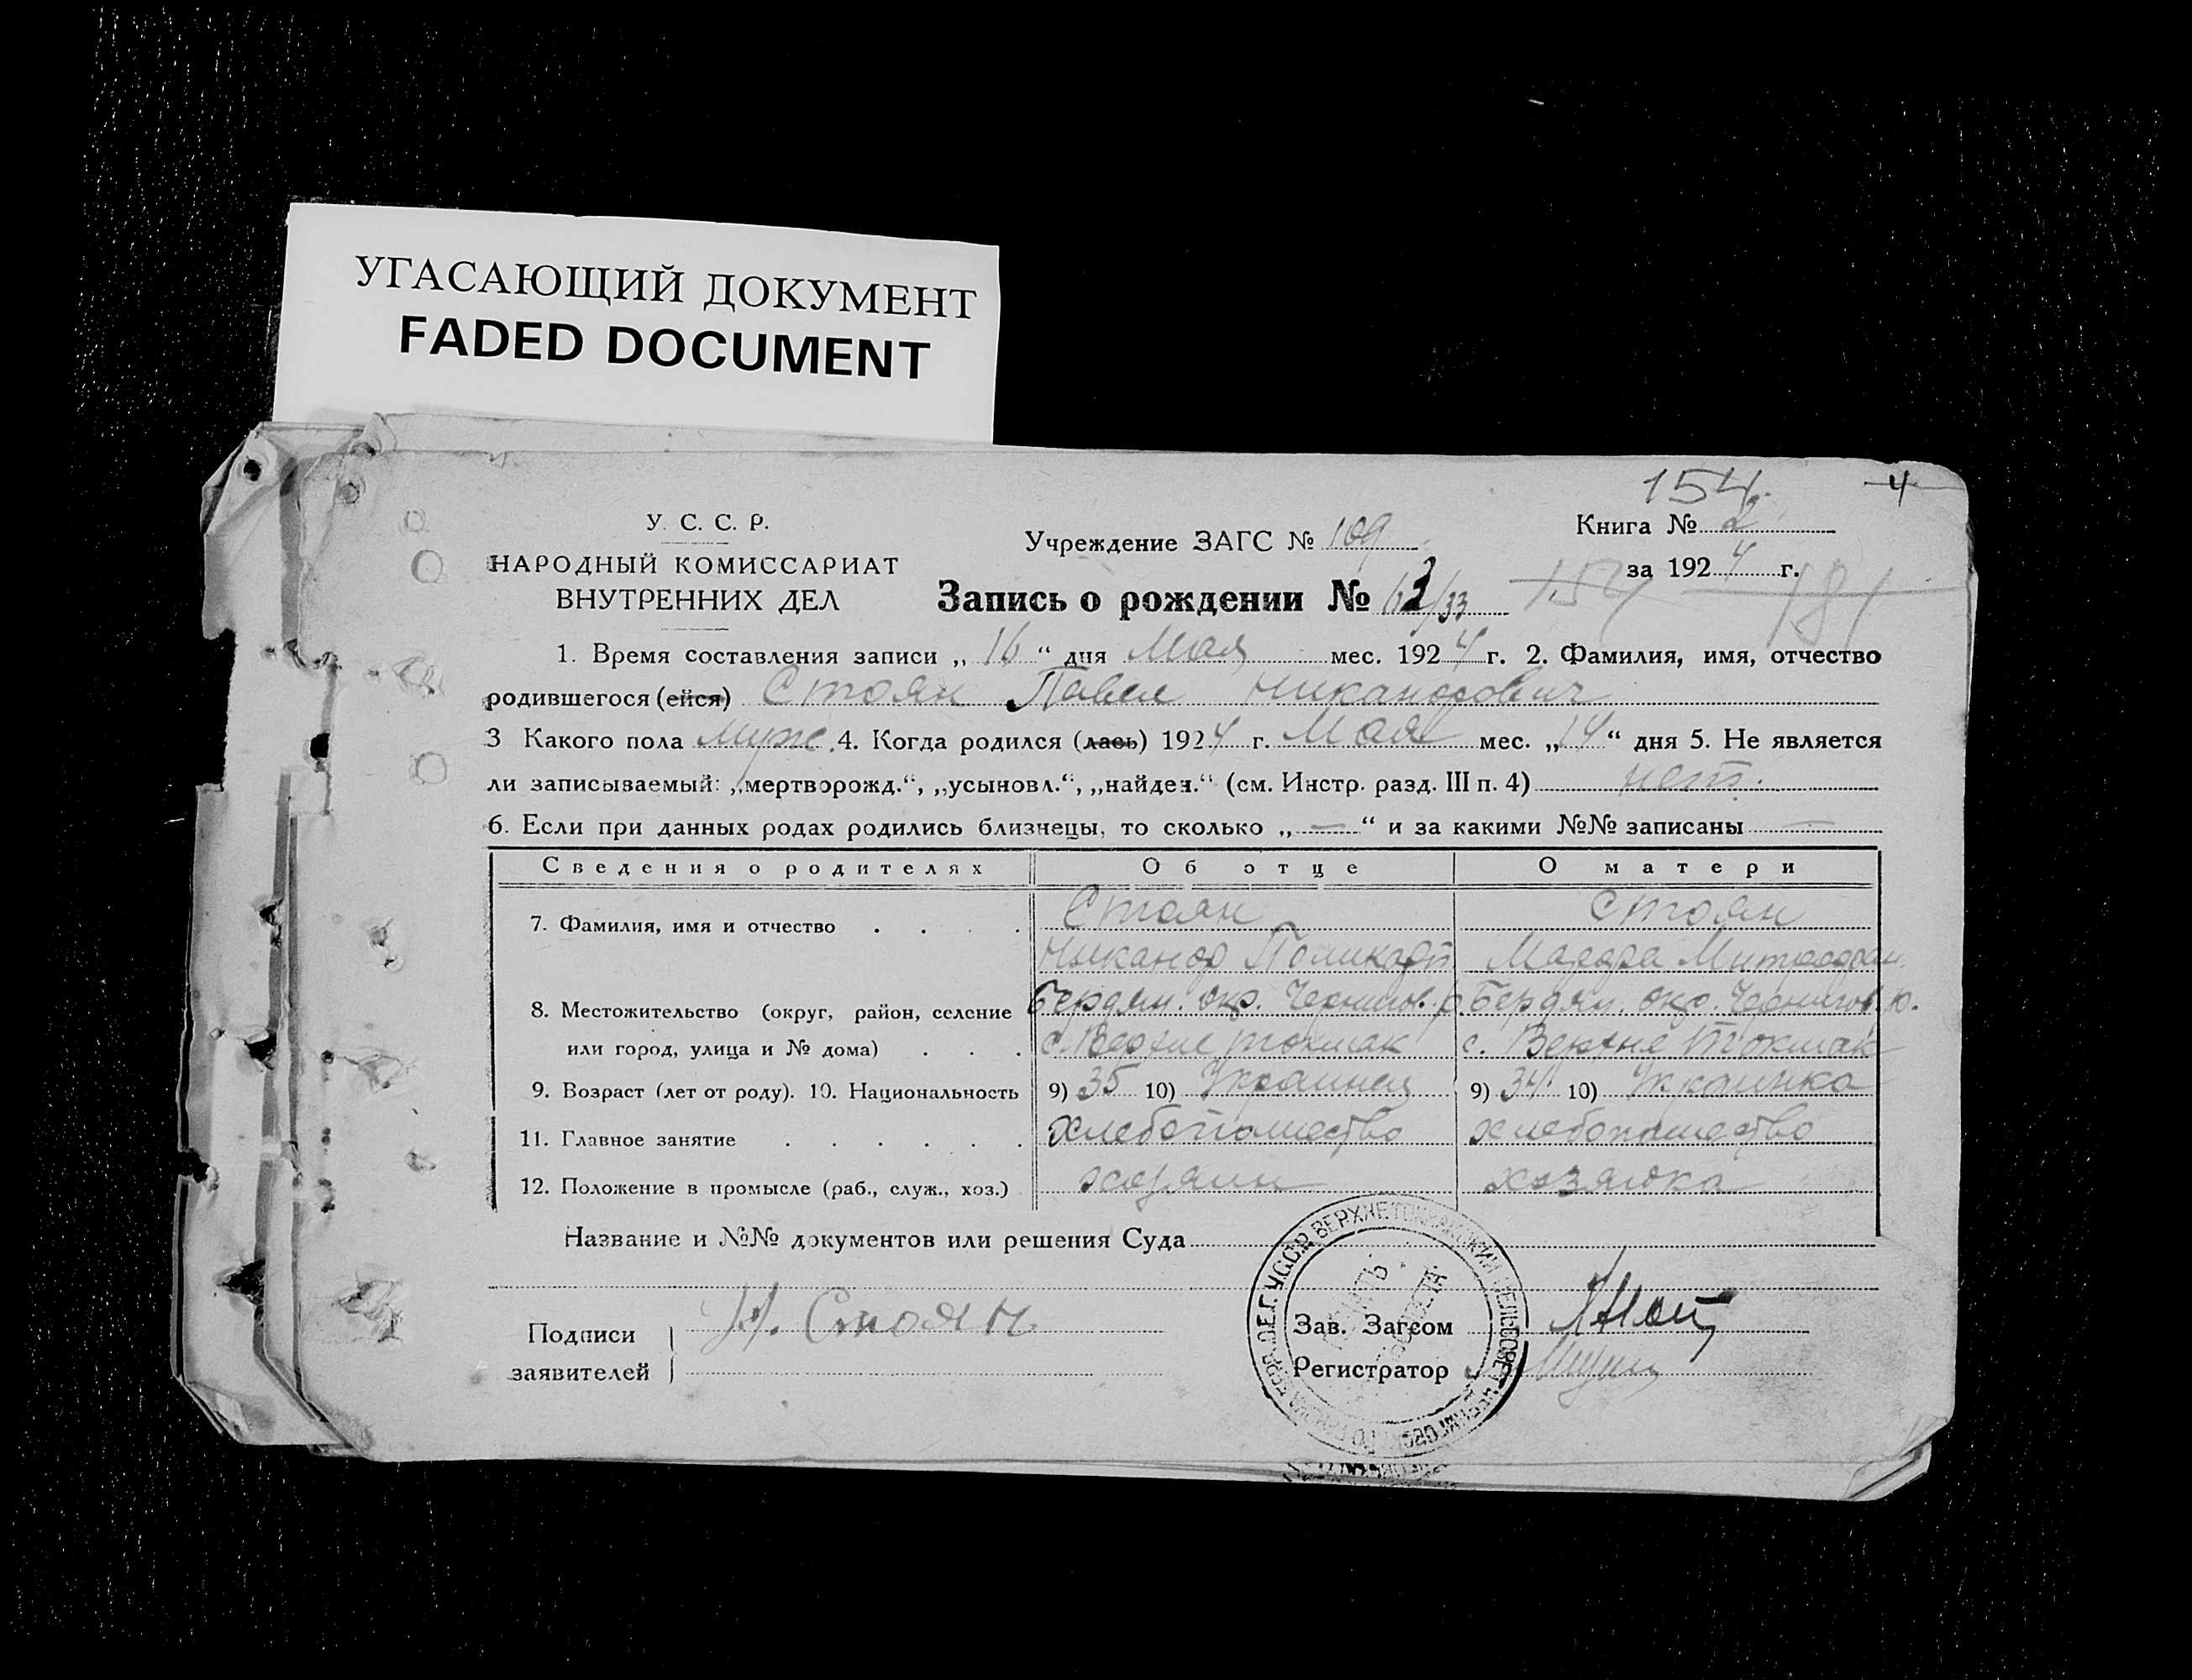 УГАСАЮЩИЙ ДОКУМЕНТ
FADED DOCUMENT
154.
4
У. С. С. Р.
НАРОДНЫЙ КОМИССАРИАТ
ВНУТРЕННИХ ДЕЛ
Учреждение ЗАГС № 109
Книга № 2
за 1924 г.
Запись о рождении № /33 154 181
1. Время составления записи „16“ дня Мая мес. 1924 г. 2. Фамилия, имя, отчество
родившегося (ейся) Стоян Павел Никанорович
3 Какого пола муж. 4. Когда родился (лась) 1924 г. Мая мес. „14“ дня 5. Не является
ли записываемый: „мертворожд.“, „усыновл.“, „найден.“ (см. Инстр. разд. III п. 4) нет.
6. Если при данных родах родились близнецы, то сколько „—“ и за какими №№ записаны —
Сведения о родителях Об отце О матери
7. Фамилия, имя и отчество . . . . Стоян Стоян
Никанор Поликарп Митрофан.
8. Местожительство (округ, район, селение Бердян. окр. Чернигов. р. Бердян. окр. Чернигов. р.
или город, улица и № дома) . . . с. Верхне токмак с. Верхне Токмак
9. Возраст (лет от роду). 10. Национальность 9) 35 10) Украинец 9) 34 10) Украинка
11. Главное занятие . . . . . . хлебопашество хлебопашество
12. Положение в промысле (раб., служ., хоз.) хозяин хозяйка
Название и №№ документов или решения Суда
Подписи
заявителей
Н. Стоян
Зав. Загсом
Регистратор
У.С.С.Р. ВЕРХНЕТОКМАКСКИЙ СЕЛЬСОВЕТ